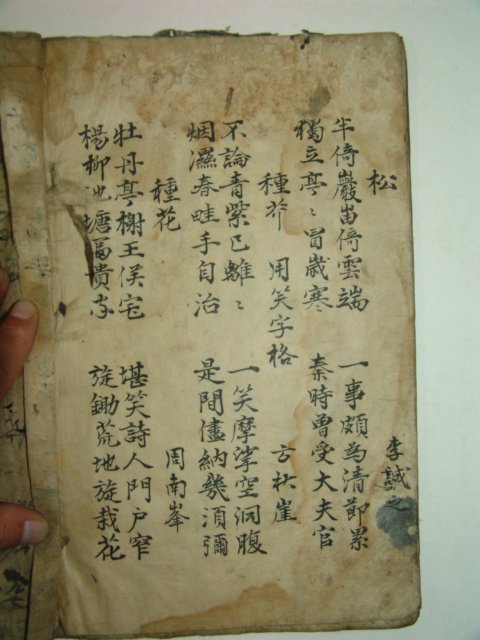 松 李誠之
半倚巖峀倚雲端
獨立亭〻冒歲寒
一事頗為清節累
秦時曾受大夫官
種芥 用笑字格 方秋崖
不論青紫已離〻
烟濕春畦手自治
一笑摩挲空洞腹
是間儘納幾須彌
種花 周南峯
牡丹亭榭王侯宅
楊柳池塘富貴家
堪笑詩人門戶窄
旋鋤荒地旋栽花